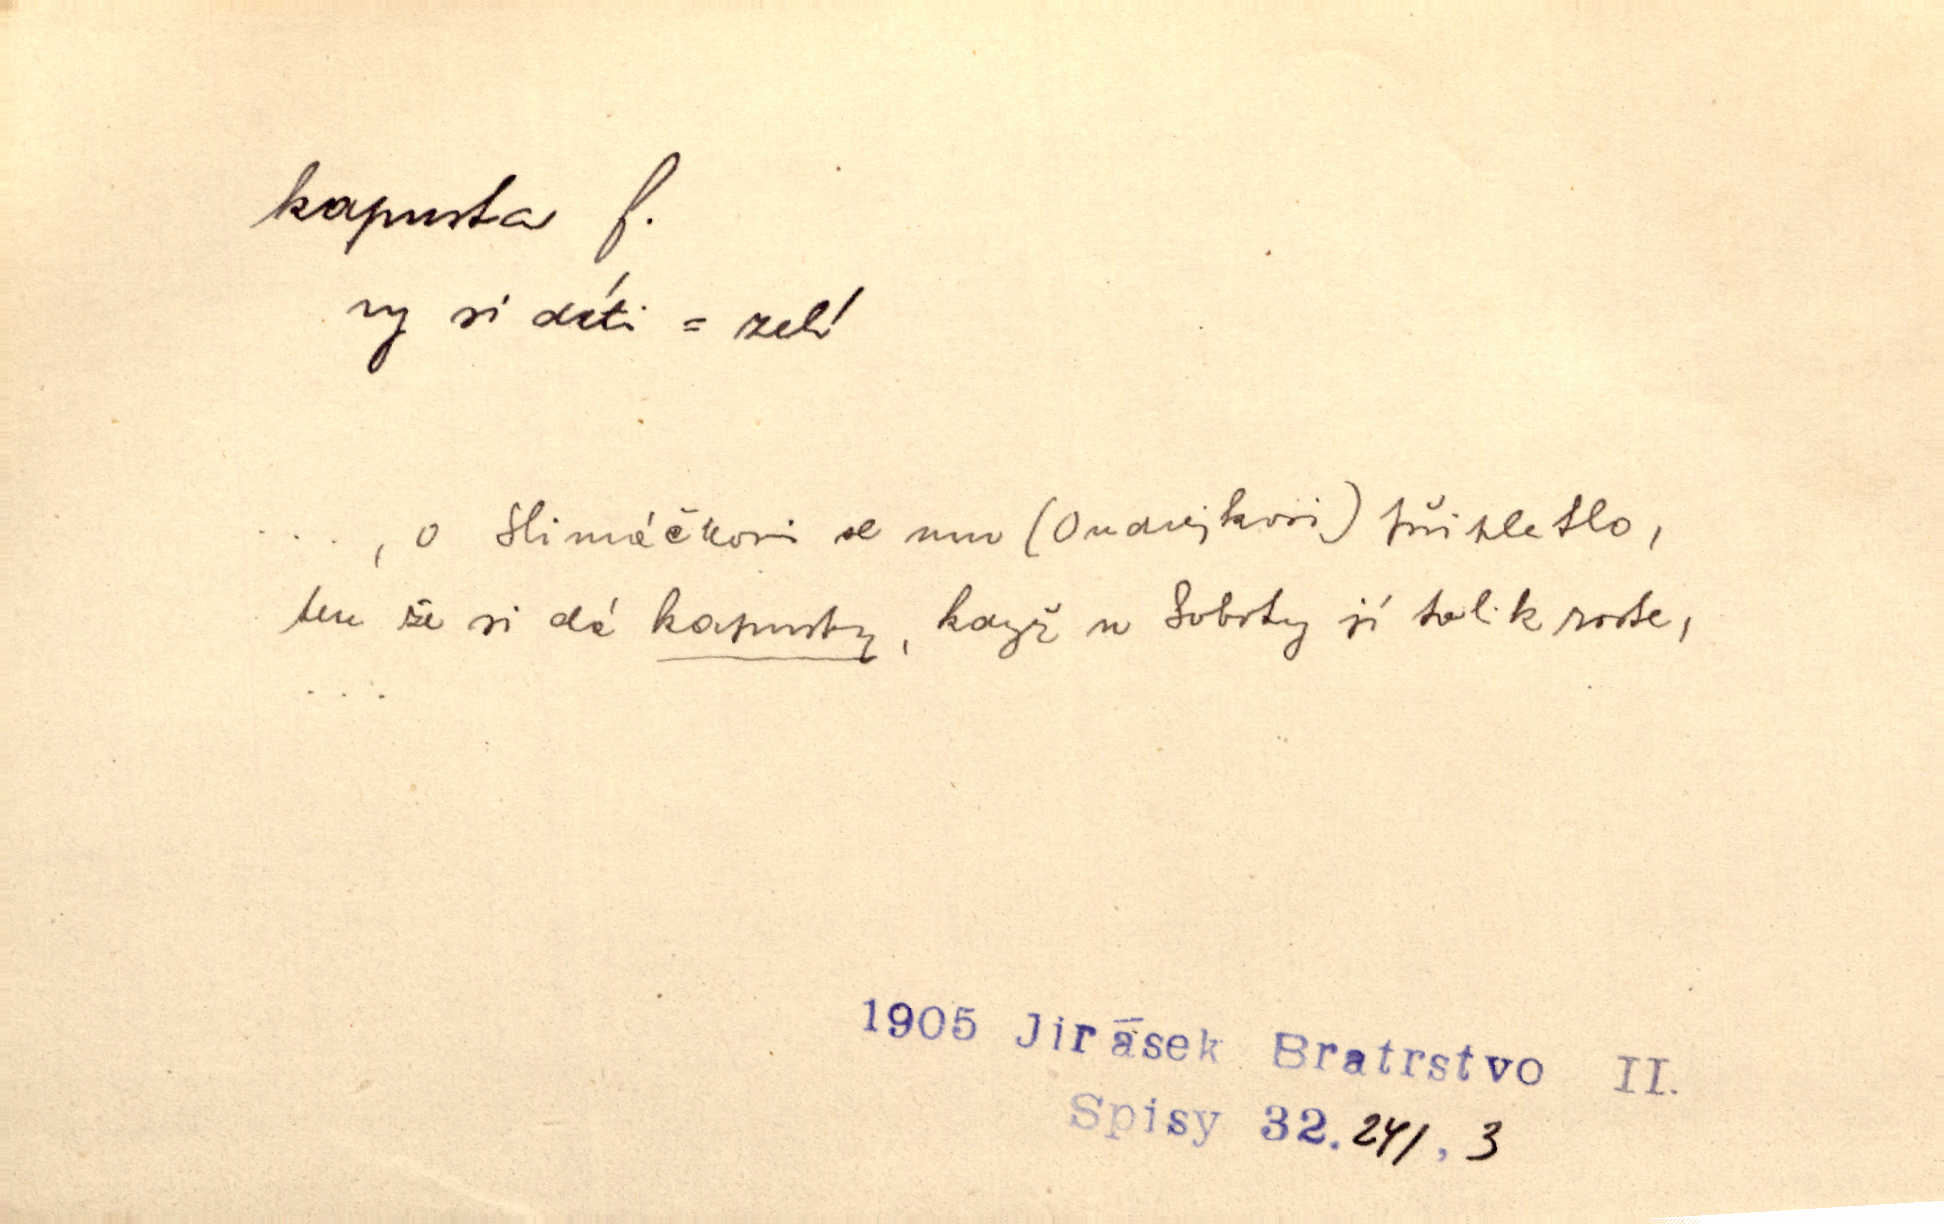 kapusta f.
ny si dáti = zelí
. . . , o Slimáčkovi se mu (Ondrejkovi) připletlo,
ten že si dá kapusty, když u Soboty jí tolik roste,
. . .
1905 Jirásek Bratrstvo II.
Spisy 32. 241, 3